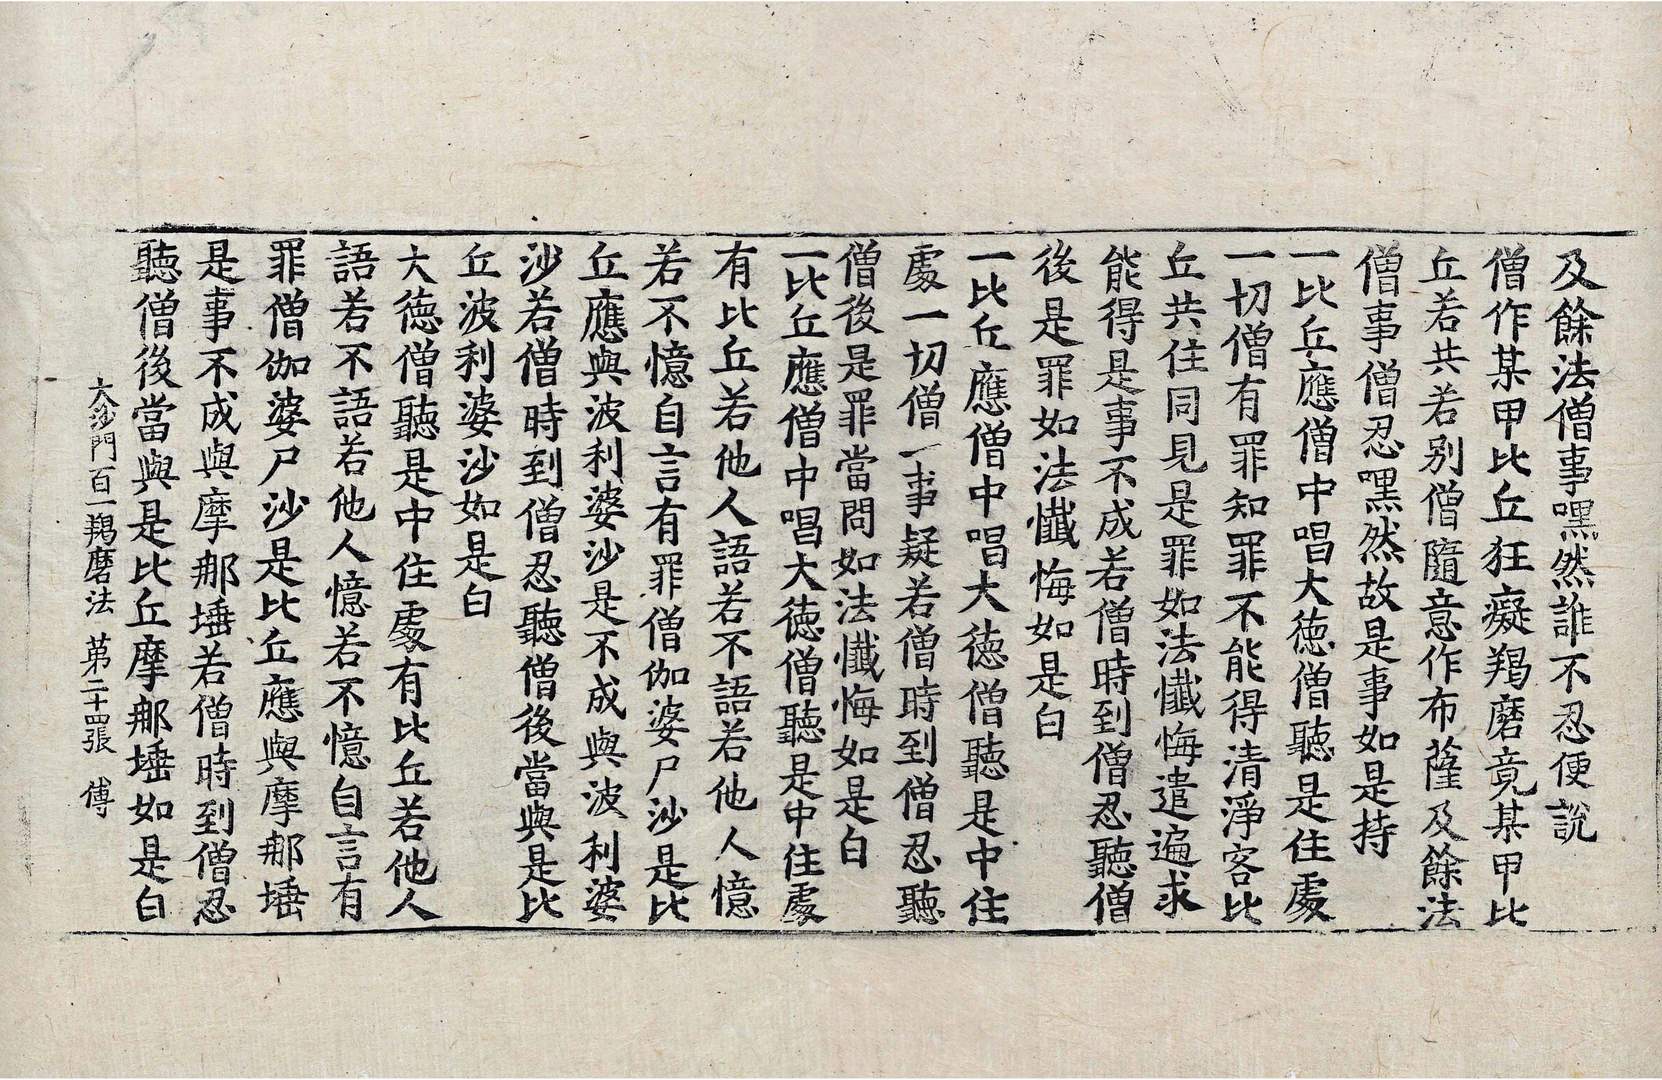 及餘法僧事嘿然誰不忍便說
僧作某甲比丘狂癡羯磨竟某甲比
丘若共若别僧隨意作布薩及餘法
僧事僧忍嘿然故是事如是持
一比丘應僧中唱大徳僧聽是住處
一切僧有罪知罪不能得清淨客比
丘共住同見是罪如法懺悔遣遍求
能得是事不成若僧時到僧忍聽僧
後是罪如法懺悔如是白
一比丘應僧中唱大徳僧聽是中住
處一切僧一事疑若僧時到僧忍聽
僧後是罪當問如法懺悔如是白
一比丘應僧中唱大徳僧聽是中住處
有比丘若他人語若不語若他人憶
若不憶自言有罪僧伽婆尸沙是比
丘應與波利婆沙是不成與波利婆
沙若僧時到僧忍聽僧後當與是比
丘波利婆沙如是白
大徳僧聽是中住處有比丘若他人
語若不語若他人憶若不憶自言有
罪僧伽婆尸沙是比丘應與摩那埵
是事不成與摩那埵若僧時到僧忍
聽僧後當與是比丘摩那埵如是白
大沙門百一羯磨法 第二十四張 傅